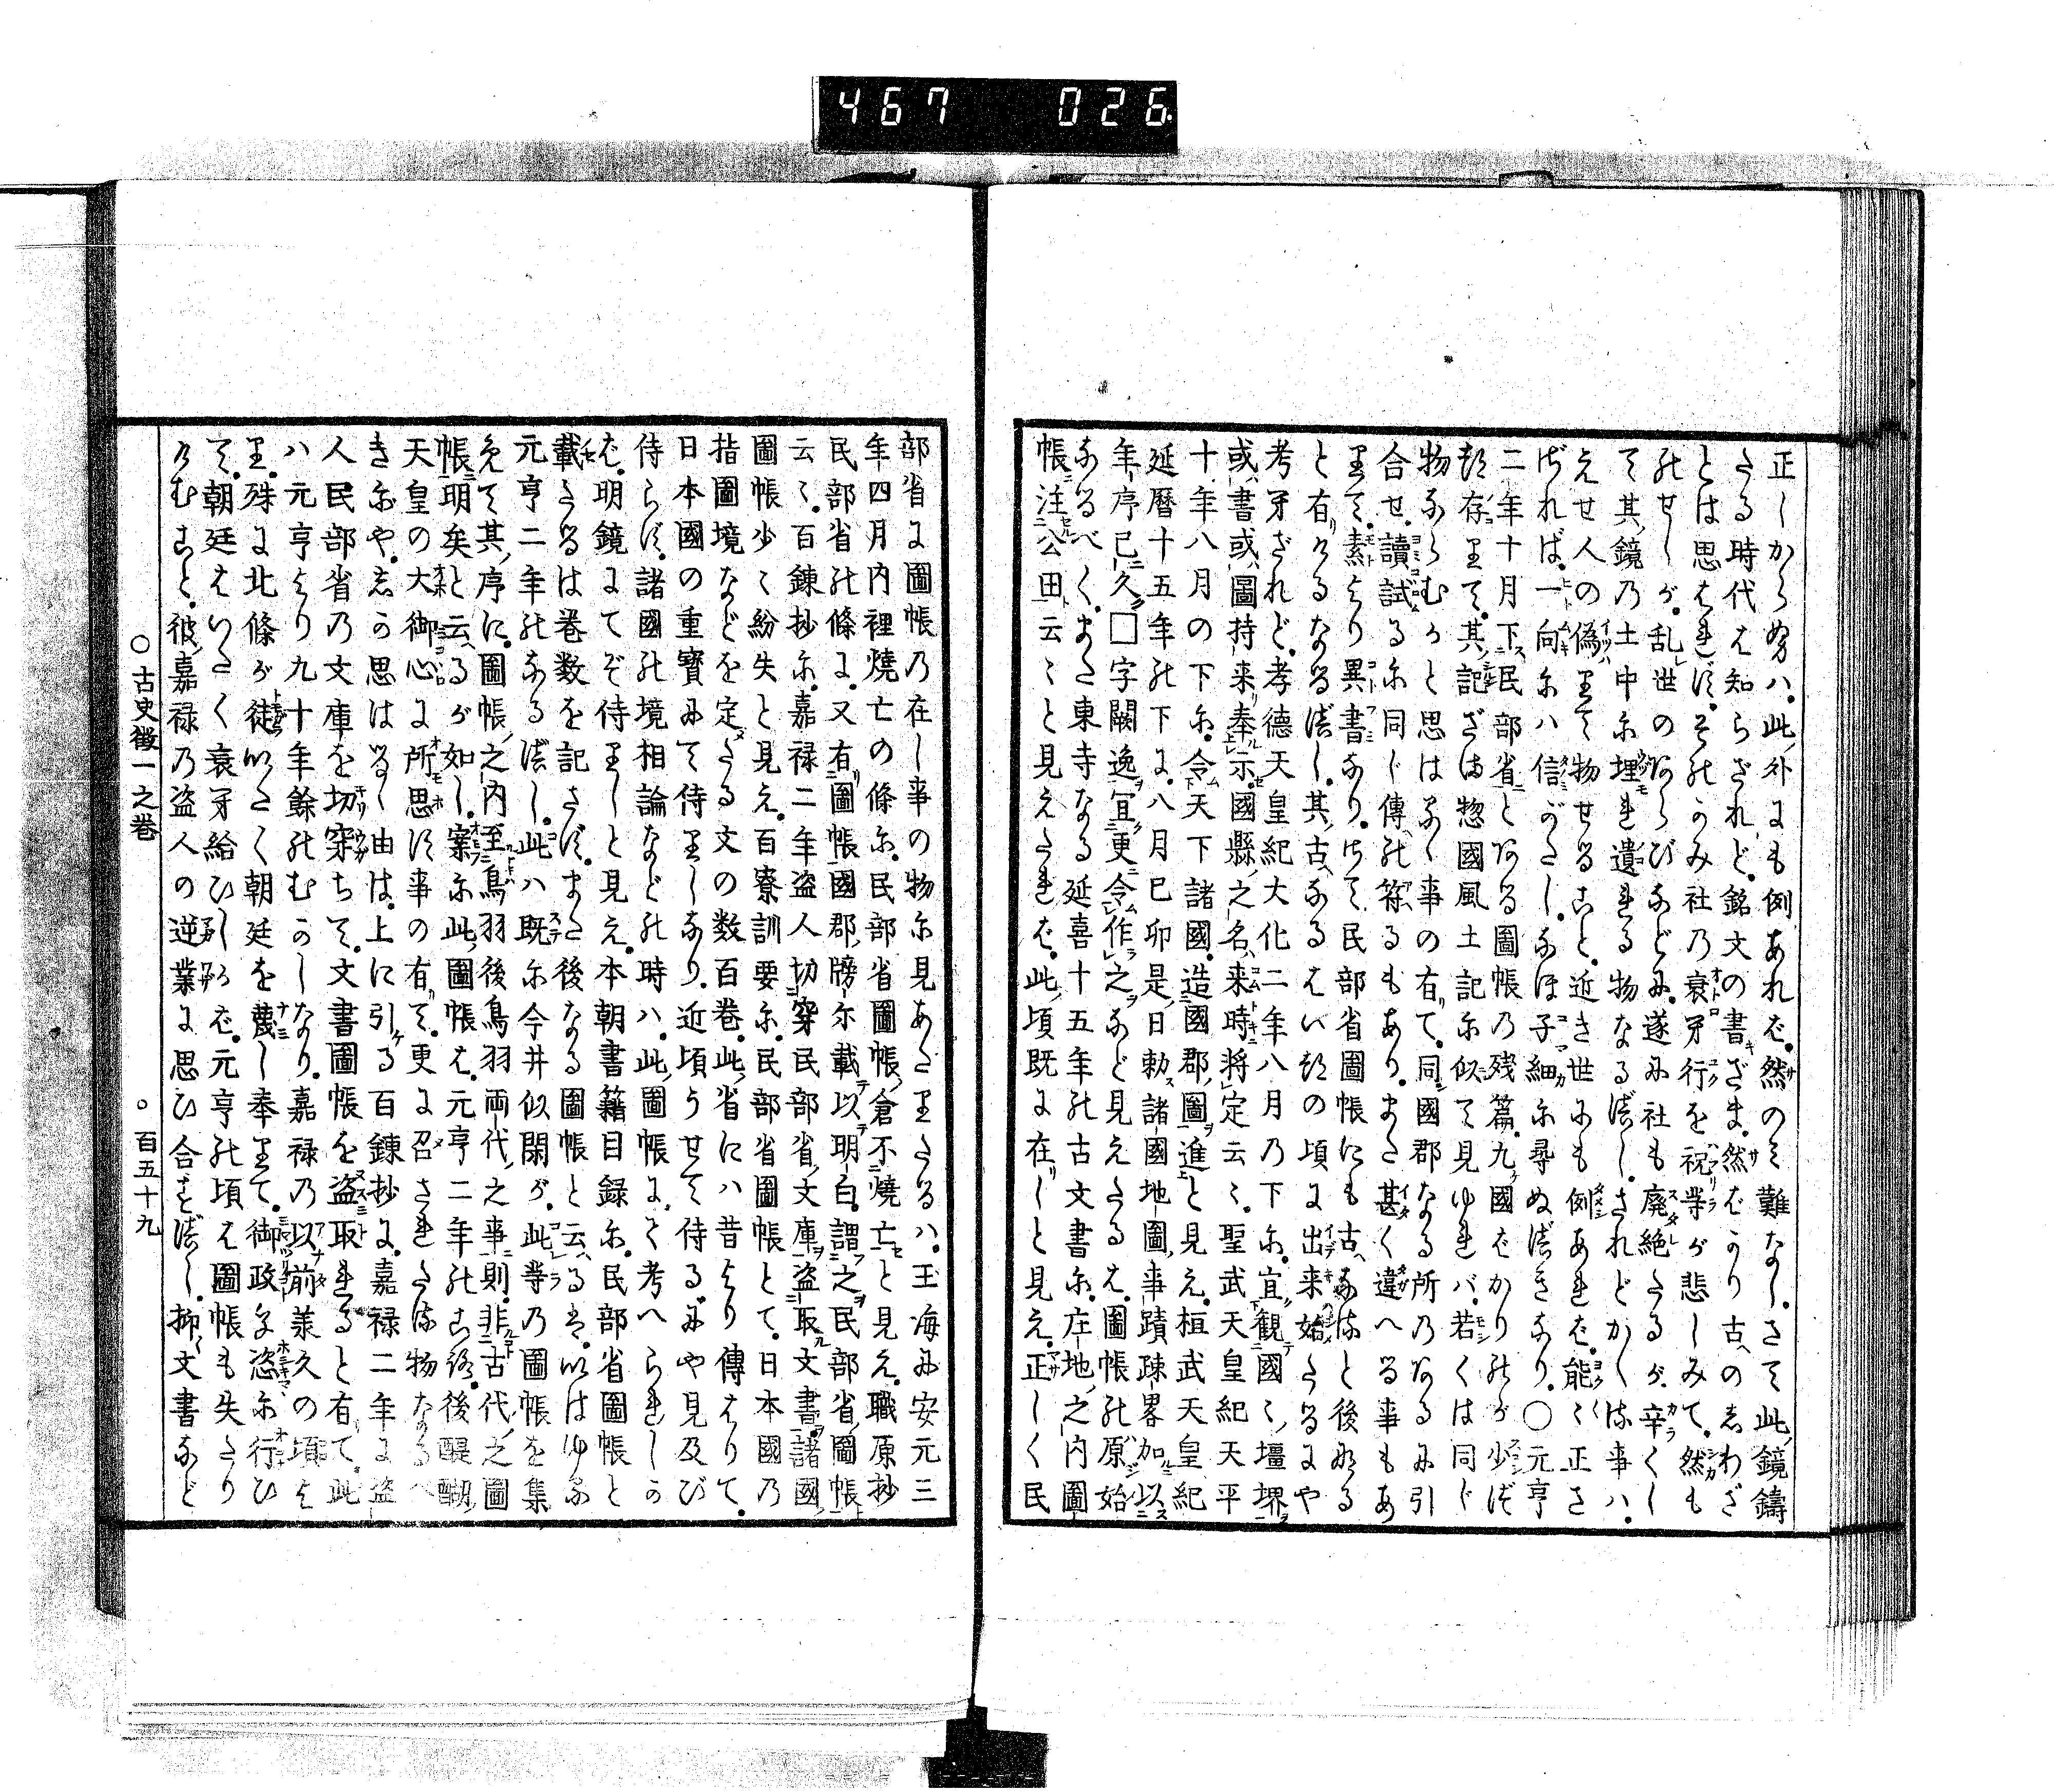 467 026
正しからぬハ此外にも例あれど然のミ難なしさて此鏡鑄
たる時代は知らざれど銘文の書ざま然ばかり古への志わざ
とは思はれずそのかみ社の衰牙行を祝等が悲しみて然も
のせしが乱世のならびなどに遂に社も廃絶たるが辛くし
て其鏡乃土中に埋れ遺れる物なるべしされどかくる事ハ
えせ人の偽りて物せること近き世にも例あれば能々正さ
ずれば一向にハ信がたしなほ子細に尋ぬべきなり〇元亨
二年十月下民部省とある圖帳乃残篇九國ばかりのが少ず
存りて其記ざま惣國風土記に似て見ゆれバ若くは同じ
物ならむかと思はるゝ事の有て同國郡なる所乃あるに引
合せ讀試るに同じ傳の符るもあり
また甚く違へる事もあ
りて素より異書なりさて民部省圖帳にも古へなると後なる
と有けるなるべし其古なるはい
つの頃に出来始たるにや
考牙ざれど孝德天皇紀大化二年八月乃下に宜觀國々壃堺
或書或圖持来奉示國縣之名来時将定云々聖武天皇紀天平
十年八月の下に令天下諸國造國郡圖進と見え桓武天皇紀
延暦十五年の下に八月己卯是日勅諸國地圖事蹟疎畧加以
年序已久□字闕逸宜更令作之など見えたるは圖帳の原始
なるべくまた東寺なる延喜十五年の古文書に庄地之内圖
帳注公田云々と見えたれば此頃既に在しと見え正しく民
部省に圖帳乃在し事の物に見あたりたるハ玉海に安元三
年四月内裡燒亡の條に民部省圖帳倉不燒亡と見え職原抄
民部省の條に又有圖帳國郡牓示載以明白謂之民部省圖帳
云々百錬抄に嘉禄二年盗人切穿民部省文庫盗取文書諸國
圖帳少々紛失と見え百寮訓要に民部省圖帳とて日本國乃
指圖境などを定たる文の数百巻此省にハ昔より傳はりて
日本國の重寳にて侍りしなり近頃うせて侍るにや見及び
侍らず諸國の境相論などの時ハ此圖帳にて考へられしか
ば明鏡にてぞ侍りしと見え本朝書籍目録に民部省圖帳と
載たるは巻数を記さずまた後なる圖帳と云へるはいはゆる
元亨二年のなるべし此ハ既に今井似閑が此等乃圖帳を集
免て其序に圖帳之内至鳥羽後鳥羽両代之事則非古代之圖
帳明矣と云るが如し案に此圖帳は元亨二年のころ後醍醐
天皇の大御心に所思す事の有て更に召されたる物なるべ
きにや志か思はるゝ由は上に引る百錬抄に嘉禄二年に盗
人民部省乃文庫を切穿ちて文書圖帳を盗取れると有て此
ハ元亨より九十年餘のむかしなり嘉禄乃以前羕久の頃よ
り殊に北條が徒いたく朝廷を蔑し奉りて御政を恣に行ひ
て朝廷はいたく衰牙給ひしかば元亨の頃は圖帳も失たり
けむこと彼嘉禄乃盗人の逆業に思ひ合すべし抑文書など
〇古史徴一之巻 〇百五十九